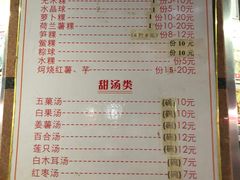 水晶球 份5-10元
萝卜粿 份5-10元
荷兰薯粿 份5-10元
笋粿 份8-12元
鲎粿 份 10 元
粽球 份 10元
水粿 份5-10元
焗烧红薯、芋 份15-20元
甜汤类
五菓汤 (碗)12元
白果汤 (碗)10元
姜薯汤 (碗)10元
百合汤 (碗)12元
莲只汤 (碗)10元
白木耳汤 (碗)7元
红枣汤 (碗)7元